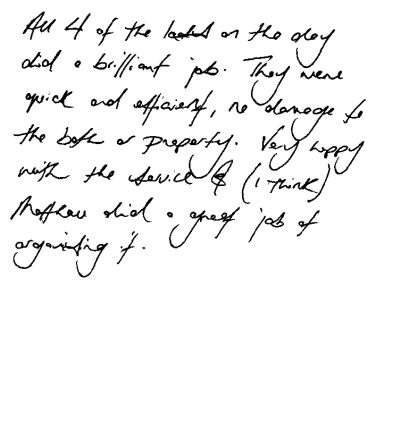 All 4 of the lads on the day
did a brilliant job. They were
quick and efficient, no damage to
the both or property. Very happy
with the service & (I think)
Matthew did a great job of
organising it.